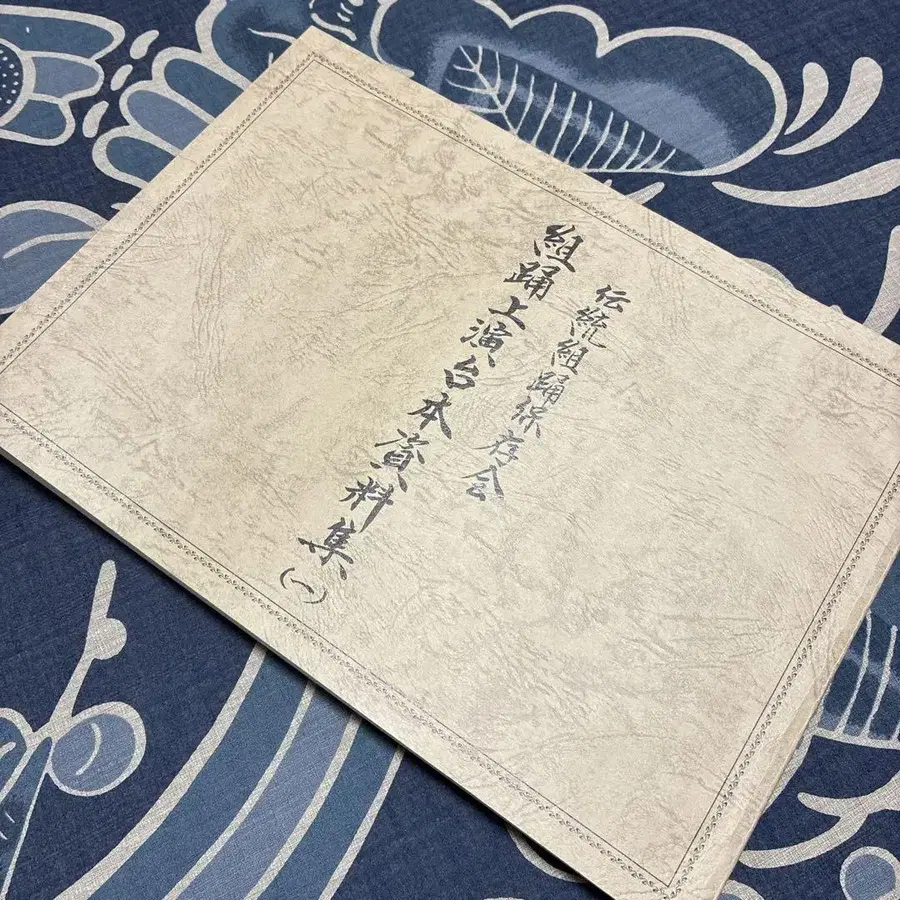 伝統組踊保存会
組踊上演台本資料集(一)